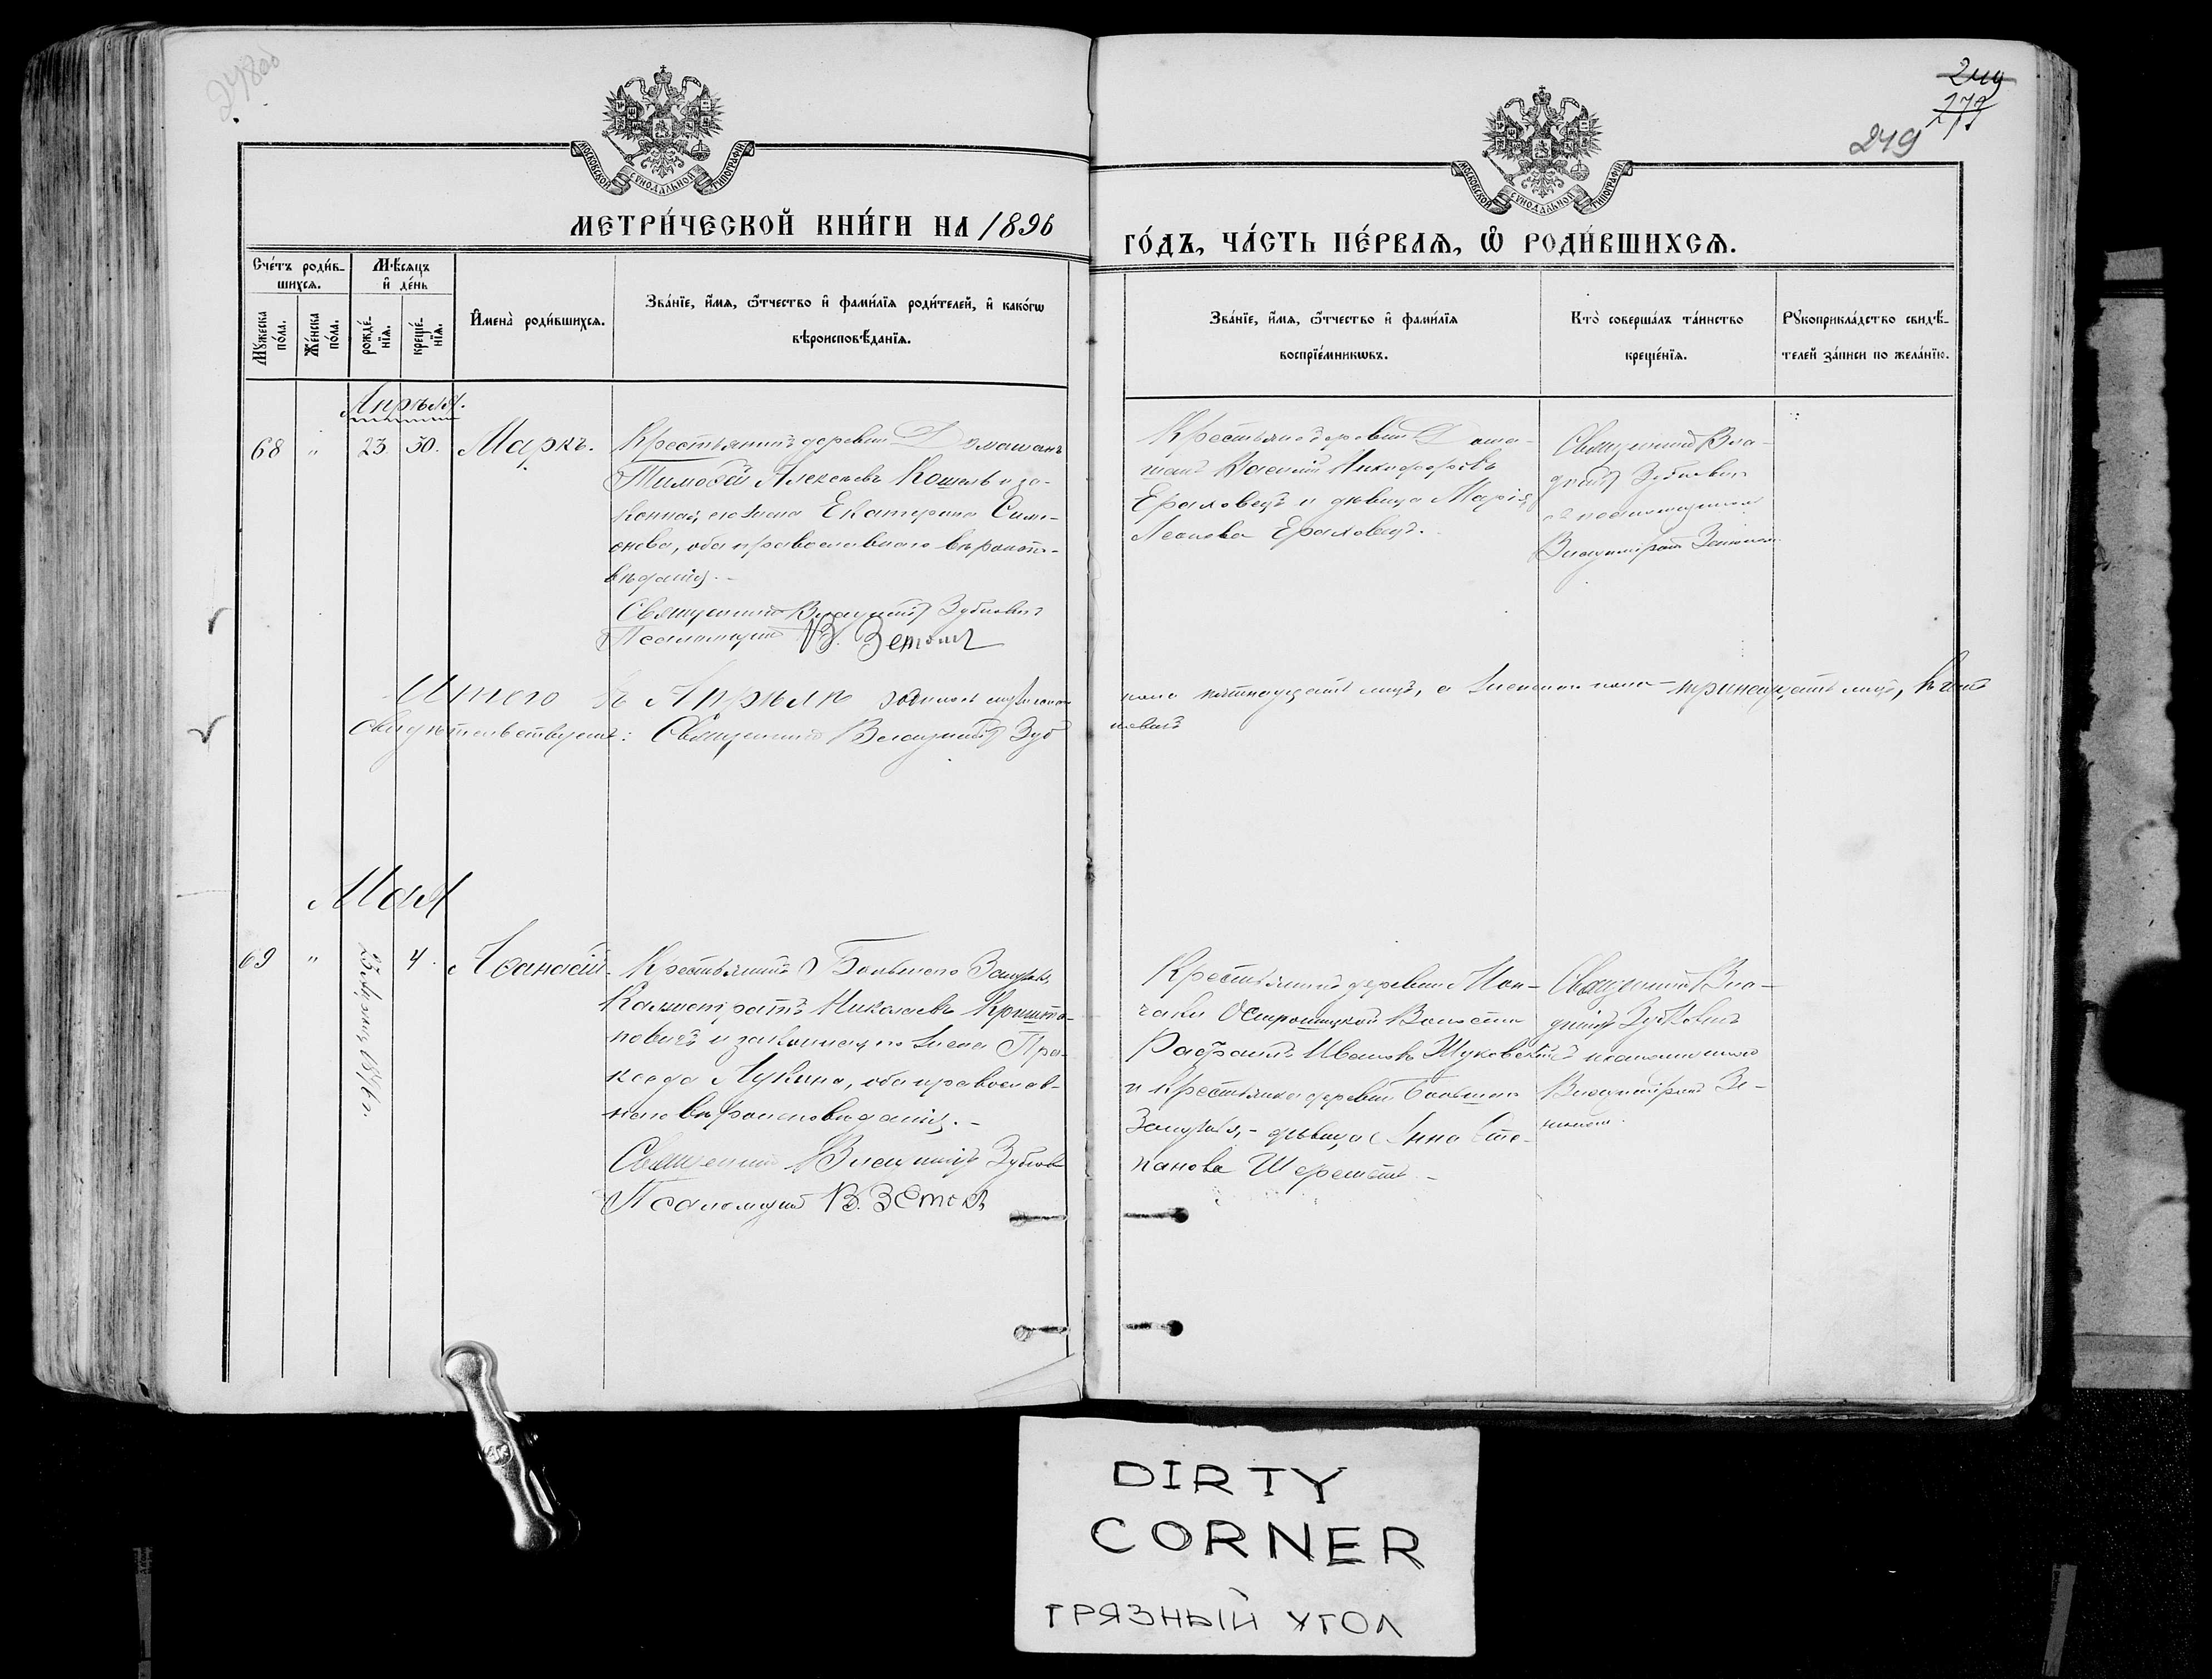 249
219
МОСКОВСКОЙ СѴНОДАЛЬНОЙ ТИПОГРАФІИ
МОСКОВСКОЙ СѴНОДАЛЬНОЙ ТИПОГРАФІИ
МЕТРИ́ЧЕСКОЙ КНИ́ГИ НА 1896
ГО́ДЪ, ЧА́СТЬ ПЕ́РВАѦ, Ѽ РОДИ́ВШИХСѦ.
Сче́тъ роди́в-
шихсѧ.
Мѣ́сѧцъ
и҆ де́нь
Мꙋ́жеска по́ла.
Же́нска по́ла.
рожде́-нїѧ.
креще́-нїѧ.
И҆мена̀ роди́вшихсѧ.
Зва́нїе, и҆́мѧ, ѻ҆́тчество и҆ фами́лїѧ роди́телей, и҆ како́гѡ
вѣроисповѣ́данїѧ.
Зва́нїе, и҆́мѧ, ѻ҆́тчество и҆ фами́лїѧ
воспрїе́мникѡвъ.
Кто̀ соверша́лъ та́инство
креще́нїѧ.
Рꙋкоприкла́дство свидѣ́-
телей за́писи по жела́нїю.
Апрѣля.
68 " 23 30. Маркъ.
Крестьянинъ деревни Домашанъ
Тимоѳей Алексѣевъ Кошель и за-
конная его жена Екатерина Симе-
онова, оба православнаго вѣроиспо-
вѣданія.-
Священникъ Владиміръ Зубковичъ
Псаломщикъ В.
Крестьяне деревни Дома-
шанъ Василій Никифоровъ
Ераховецъ и дѣвица Марія
Леонова Ераховецъ.
Священникъ Вла-
диміръ Зубковичъ
съ псаломщикомъ
Владиміромъ
Итого въ Апрѣлѣ родилось мужескаго
пола пятнадцать лицъ, а женскаго пола - тринадцать лицъ, въ чемъ
свидѣтельствуемъ: Священникъ Владиміръ Зуб
ковичъ
Мая
69 " 23 1896 г. 4. Аѳанасій.
Крестьянинъ Большого
Калистратъ Николаевъ
и законная его жена Пра-
кседа Лукина, оба православ-
наго вѣроисповѣданія.-
Священникъ Владиміръ Зубкович
Псаломщикъ В.
Крестьянинъ деревни Мон-
чаки Острошицкой Волости
Рафаилъ Ивановъ Жуковскій
и крестьянка деревни Большого
дѣвица Анна Сте-
панова Шереметъ.-
Священникъ Вла-
диміръ Зубковичъ
съ псаломщикомъ
Владиміромъ
DIRTY
CORNER
ГРЯЗНЫЙ УГОЛ